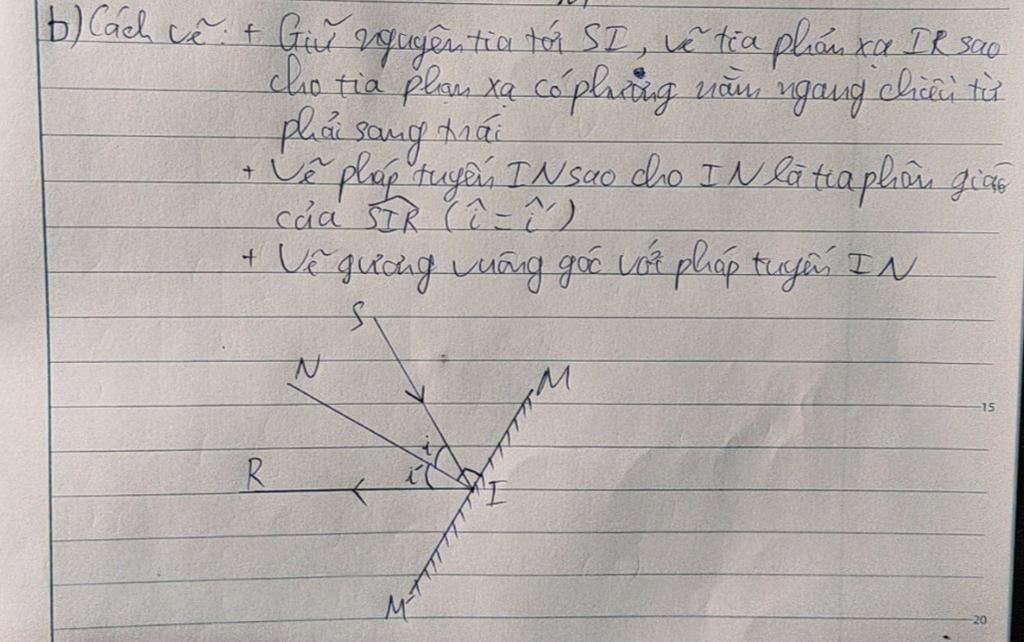 b) Cách vẽ: + Giữ nguyên tia tới SI, vẽ tia phản xạ IR sao
cho tia phản xạ có phương nằm ngang chiều từ
phải sang trái
+ Vẽ pháp tuyến IN sao cho IN là tia phân giác
của SIR (î = î')
+ Vẽ gương vuông góc với pháp tuyến IN
S
N
M
15
i
R
i'
I
M
20